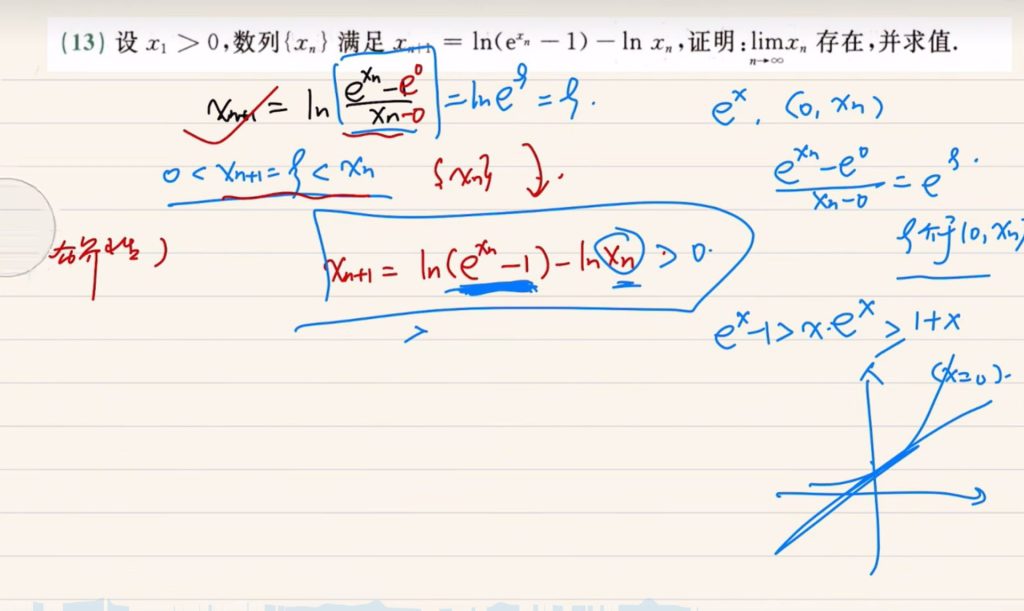 (13) 设 x₁ > 0,数列{xₙ} 满足 xₙ₊₁ = ln(e^{xₙ} − 1) − ln xₙ,证明:lim_{n→∞} xₙ 存在,并求值.
xₙ₊₁ = ln[(e^{xₙ} − e⁰)/(xₙ−0)] = ln e^ξ = ξ.
eˣ. (0, xₙ)
0 < xₙ₊₁ = ξ < xₙ {xₙ} ↓.
(e^{xₙ} − e⁰)/(xₙ−0) = e^ξ.
ξ介于(0, xₙ)
xₙ₊₁ = ln(e^{xₙ} − 1) − ln xₙ > 0.
>
eˣ−1 > x. eˣ > 1+x
(x=0).